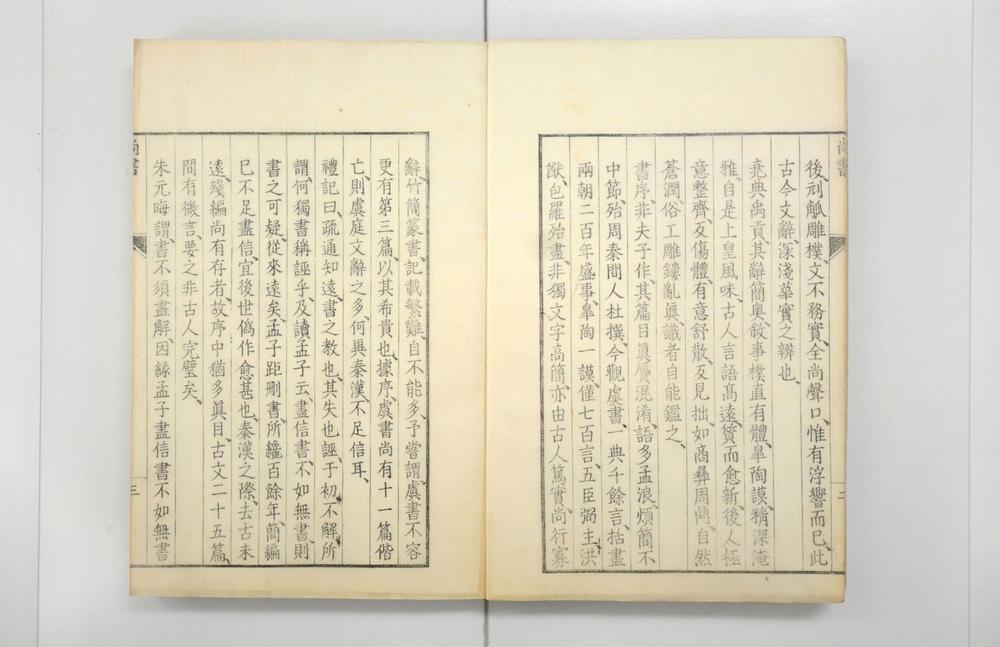 尚書
後、刓觚雕樸、文不務實、全尚聲口、惟有浮響而已、此
古今文辭、深淺華實之辨也、
堯典禹貢、其辭簡奧、敘事樸直有體、皐陶謨、精深淹
雅、自是上皇風味、古人言語高遠、質而愈新、後人極
意整齊、反傷體、有意舒散、反見拙、如商彝周鼎、自然
蒼潤、俗工雕鏤亂眞、識者自能鑑之、
書序、非夫子作、其篇目眞贋混淆、語多孟浪、煩簡不
中節、殆周秦間人杜撰、今觀虞書、一典千餘言、括盡
兩朝二百年盛事、皐陶一謨、僅七百言、五臣弼主、洪
猷、包羅殆盡、非獨文字高簡、亦由古人篤實、尚行寡
二
辭、竹簡篆書、記載繁難、自不能多、予嘗謂、虞書不容
更有第三篇、以其希貴也、據序、虞書尚有十一篇偕
亡、則虞庭文辭之多、何異秦漢、不足信耳、
禮記曰、疏通知遠、書之教也、其失也誣、于初不解所
謂、何獨書稱誣乎、及讀孟子云、盡信書、不如無書、則
書之可疑、從來遠矣、孟子距刪書、所纔百餘年、簡編
已不足盡信、宜後世僞作愈甚也、秦漢之際、去古未
遠、殘編尚有存者、故序中猶多眞目、古文二十五篇、
間有微言、要之非古人完璧矣、
朱元晦謂、書不須盡解、因緣孟子盡信書不如無書
尚書
三